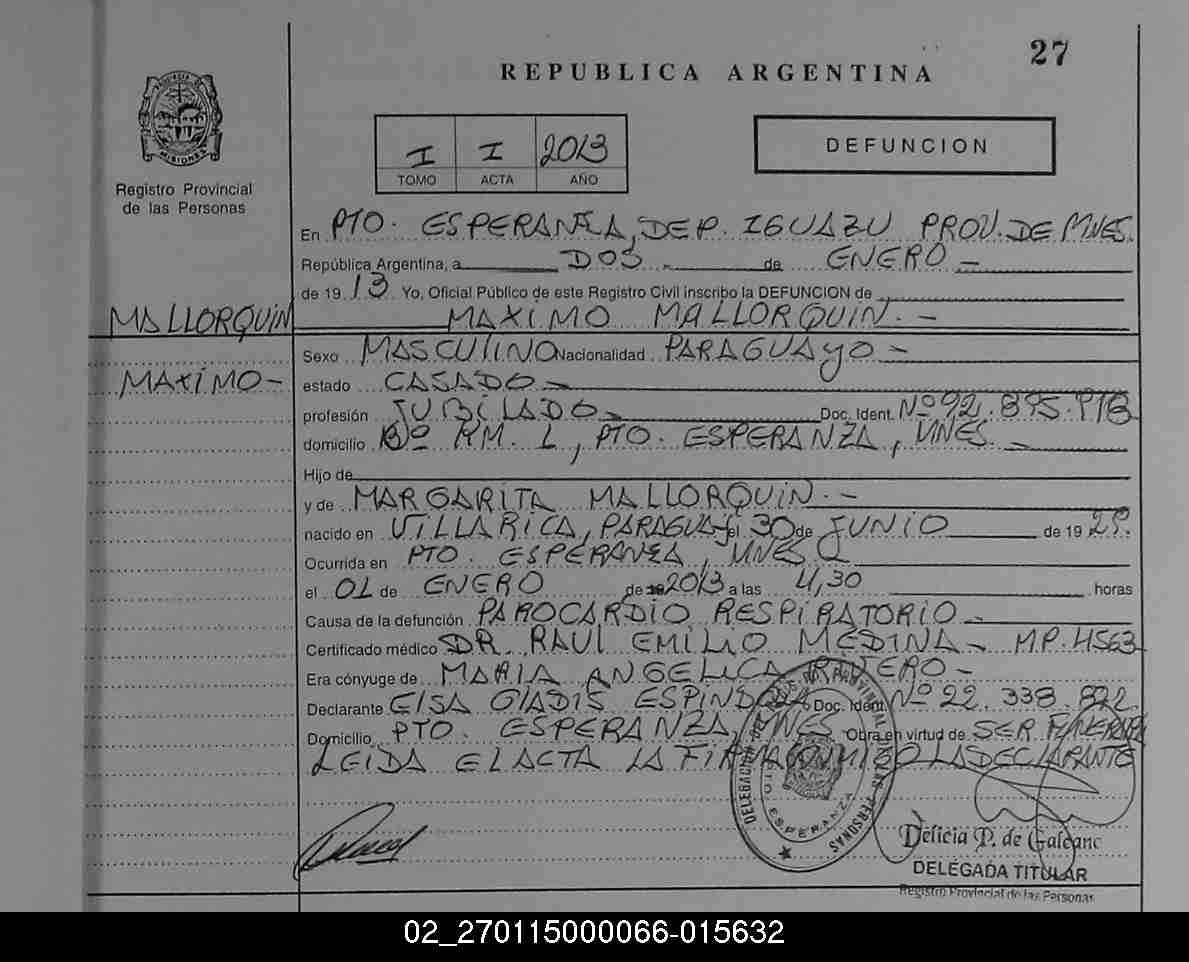 27
REPUBLICA ARGENTINA
PROVINCIA DE
MISIONES
Registro Provincial
de las Personas
I I 2013
TOMO ACTA AÑO
DEFUNCION
En PTO. ESPERANZA, DEP. IGUAZU PROV. DE MNES.
República Argentina, a DOS de ENERO -
de 19 13 Yo, Oficial Público de este Registro Civil inscribo la DEFUNCION de
MALLORQUIN MAXIMO MALLORQUIN. -
Sexo MASCULINO Nacionalidad PARAGUAYO -
MAXIMO - estado CASADO -
profesión JUBILADO - Doc. Ident. Nº 92.895.
domicilio Bº KM. 1, PTO. ESPERANZA, MNES. -
Hijo de
y de MARGARITA MALLORQUIN. -
nacido en VILLARICA, PARAGUAY el 30 de JUNIO de 19
Ocurrida en PTO. ESPERANZA, MNES
el 01 de ENERO de 19 2013 a las 4,30 horas
Causa de la defunción PAROCARDIO RESPIRATORIO -
Certificado médico DR. RAUL EMILIO MEDINA - M.P. 4563
Era cónyuge de MARIA ANGELICA -
Declarante ELSA GLADIS ESPINDOLA Doc. Ident. Nº 22.338.822
Domicilio PTO. ESPERANZA, MNES Obra en virtud de SER FUNERARIA
LEIDA EL ACTA LA FIRMA CONMIGO LA DECLARANTE
ESPERANZA
Delicia P. de Galeano
DELEGADA TITULAR
Registro Provincial de las Personas
02_270115000066-015632